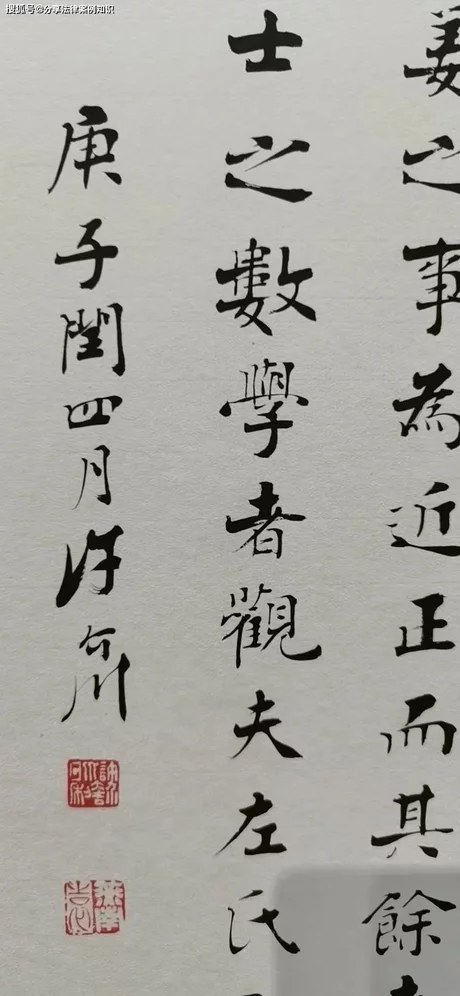 搜狐号@分享法律案例知识
姜之事為近正而其餘
士之數學者觀夫左氏
庚子閏四月許